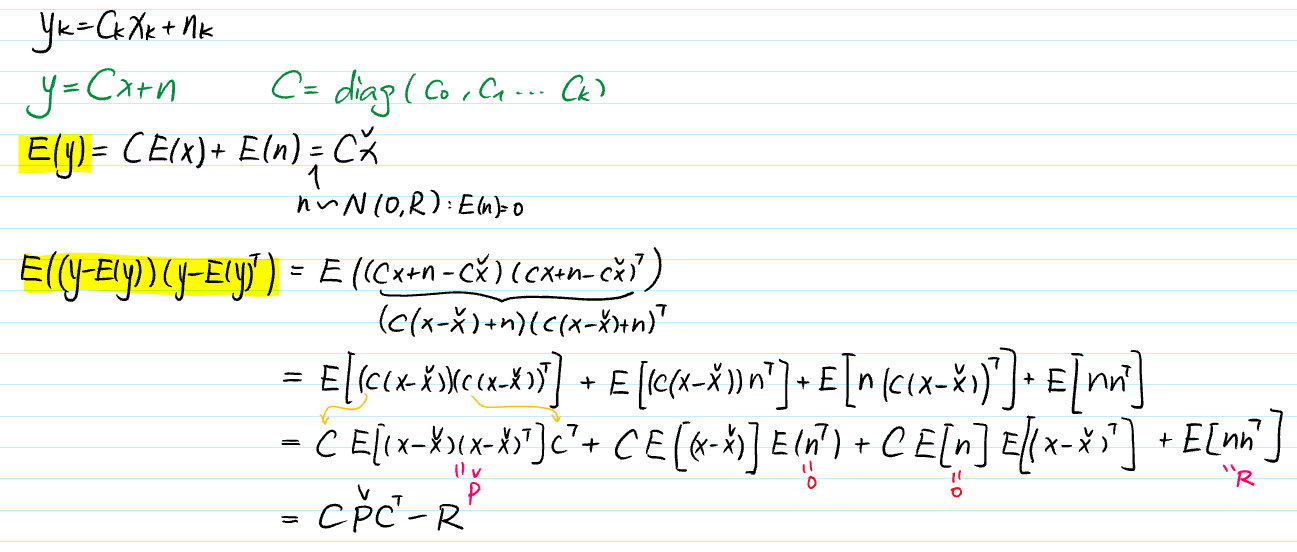 yₖ=Cₖxₖ+nₖ
y=Cx+n C= diag(C₀, C₁ ... Cₖ)
E(y)= CE(x)+ E(n) = Cx̌
↑
n ∼ N(0,R): E(n)=0
E((y-E(y))(y-E(y)ᵀ) = E((Cx+n-Cx̌)(Cx+n-Cx̌)ᵀ)
(C(x-x̌)+n)(C(x-x̌)+n)ᵀ
= E[(C(x-x̌)(C(x-x̌))ᵀ] + E[(C(x-x̌))nᵀ] + E[n(C(x-x̌))ᵀ] + E[nnᵀ]
= C E[(x-x̌)(x-x̌)ᵀ]Cᵀ + C E[(x-x̌)] E(nᵀ) + C E[n] E[(x-x̌)ᵀ] + E[nnᵀ]
" P̌ " 0 " 0 " R
= CP̌Cᵀ - R